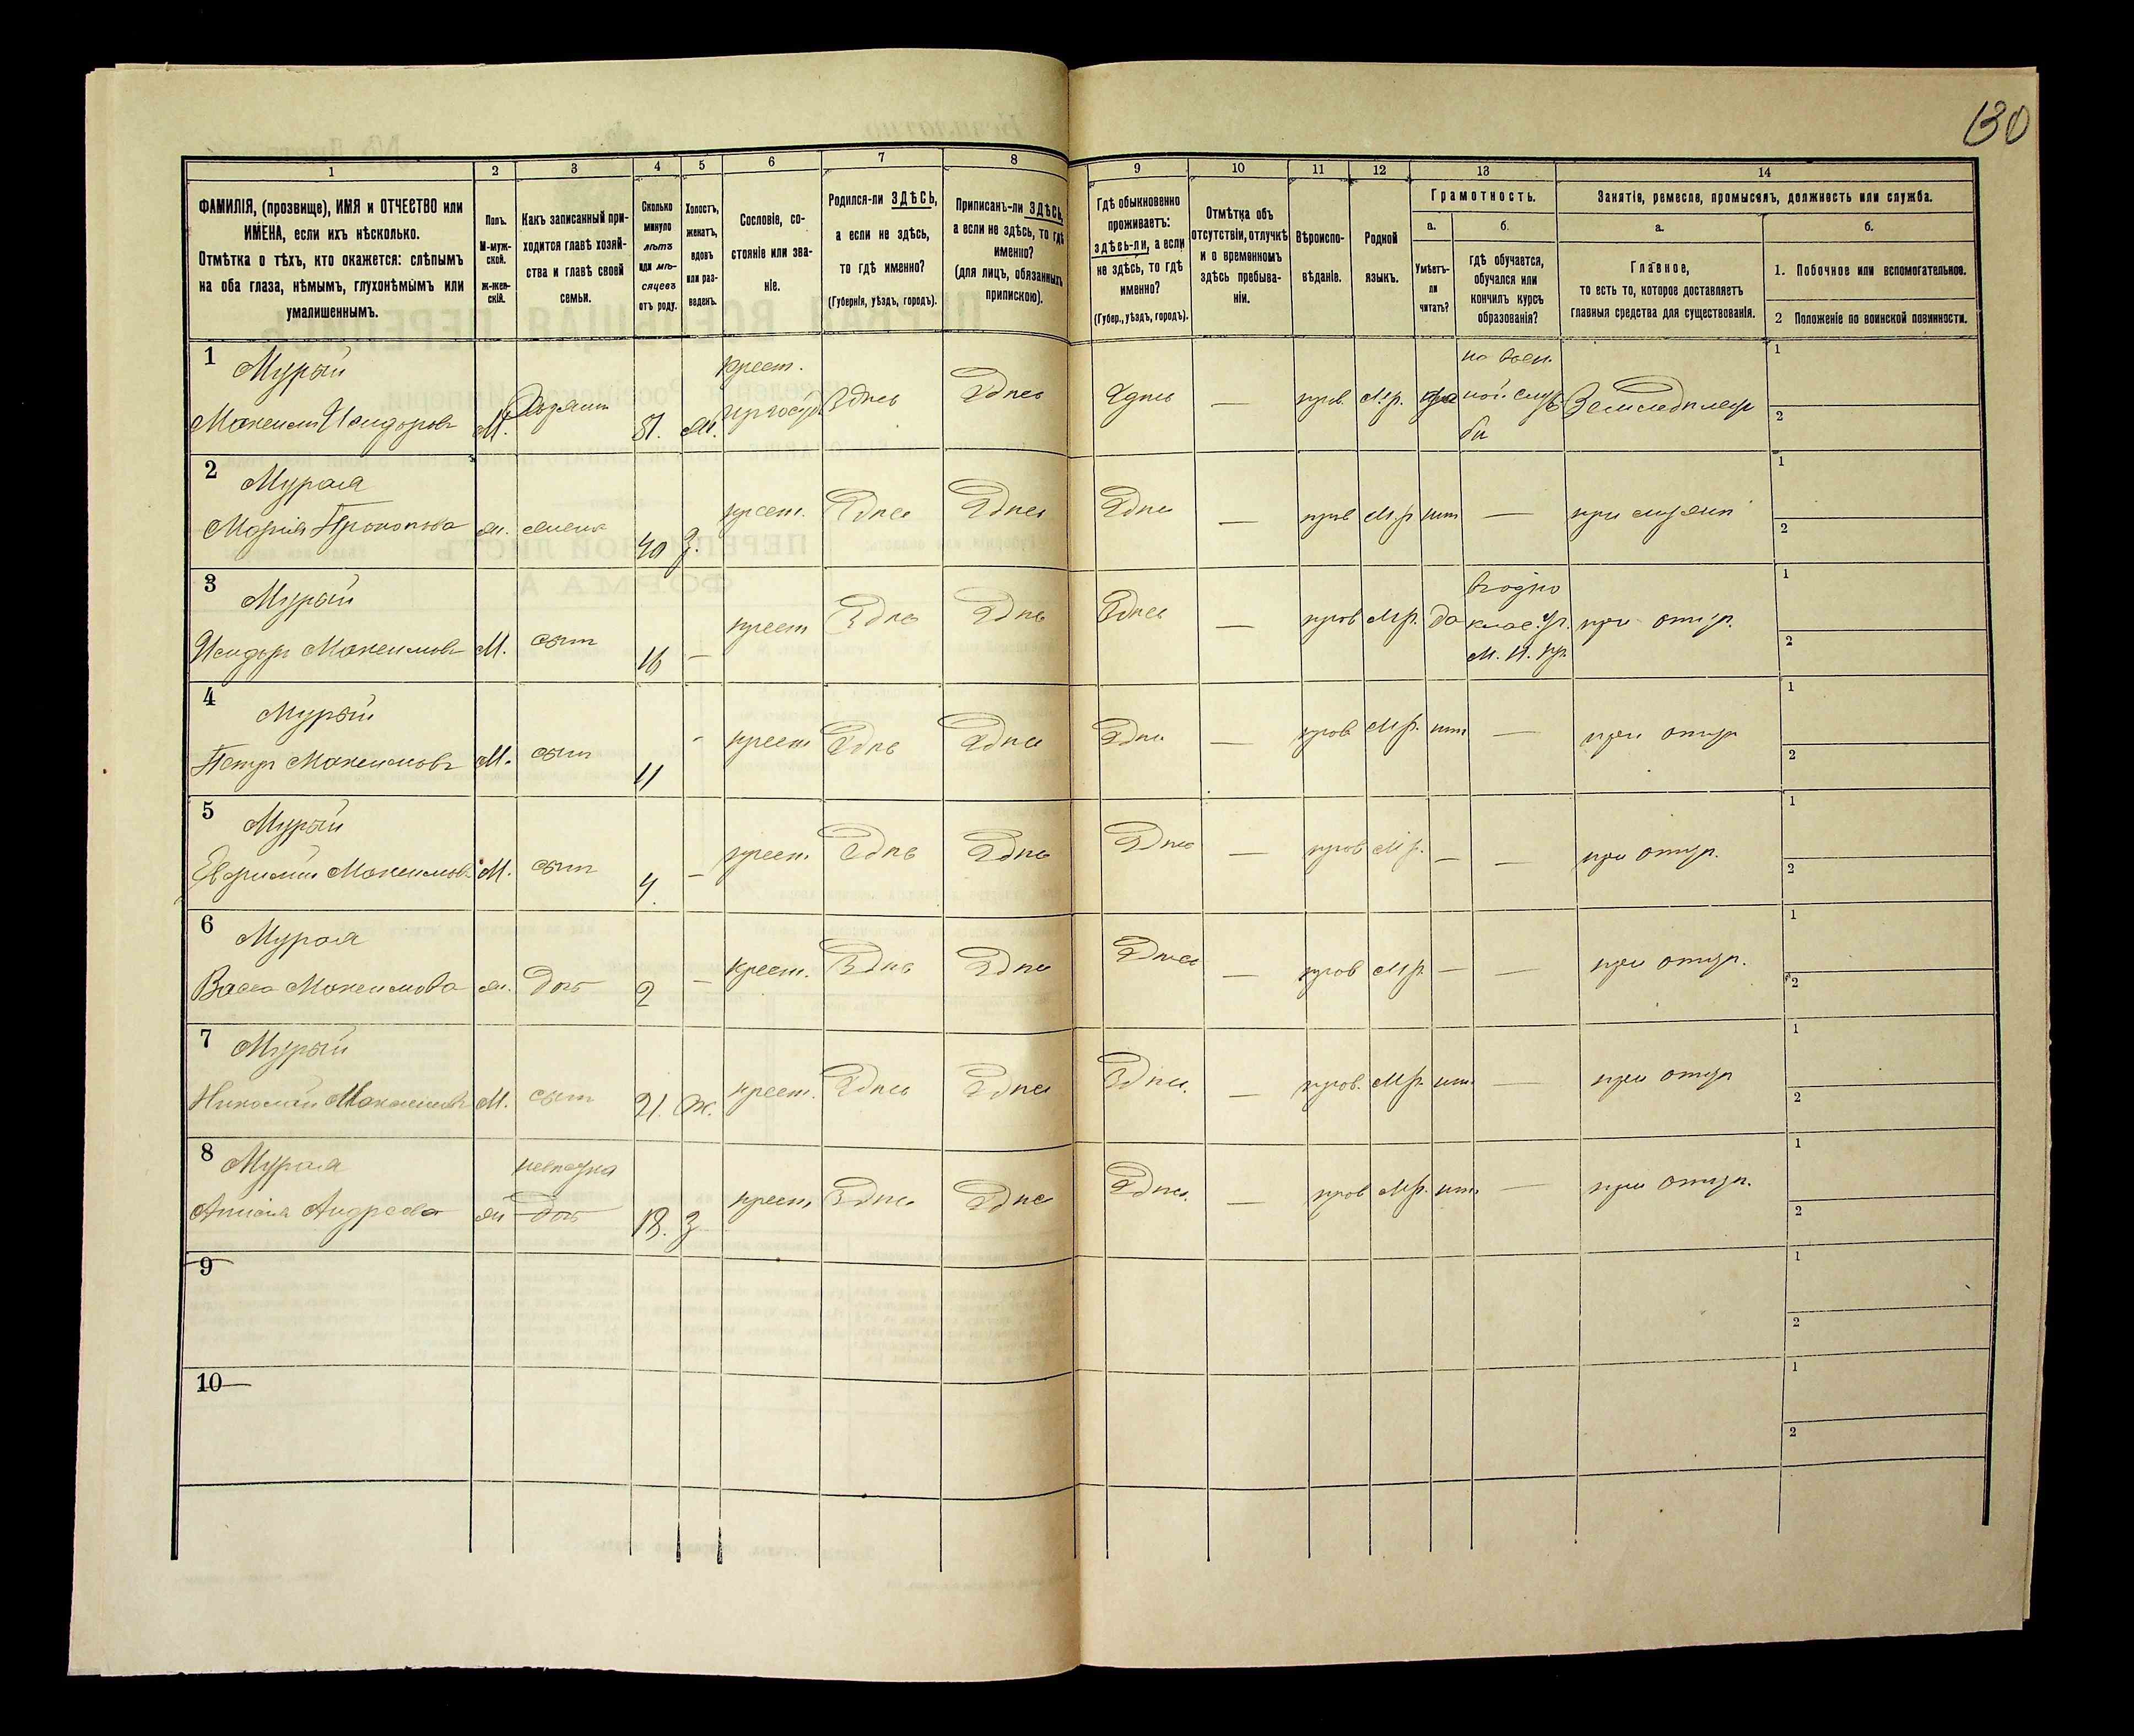 130
1 2 3 4 5 6 7 8 9 10 11 12 13 14
ФАМИЛІЯ, (прозвище), ИМЯ и ОТЧЕСТВО или
ИМЕНА, если ихъ нѣсколько.
Отмѣтка о тѣхъ, кто окажется: слѣпымъ
на оба глаза, нѣмымъ, глухонѣмымъ или
умалишеннымъ.
Полъ.
М-муж-
ской.
Ж-жен-
скій.
Какъ записанный при-
ходится главѣ хозяй-
ства и главѣ своей
семьи.
Сколько
минуло
лѣтъ
или мѣ-
сяцевъ
отъ роду.
Холостъ,
женатъ,
вдовъ
или раз-
веденъ.
Сословіе, со-
стояніе или зва-
ніе.
Родился-ли ЗДѢСЬ,
а если не здѣсь,
то гдѣ именно?
(Губернія, уѣздъ, городъ).
Приписанъ-ли ЗДѢСЬ,
а если не здѣсь, то гдѣ
именно?
(для лицъ, обязанныхъ
припискою).
Гдѣ обыкновенно
проживаетъ:
здѣсь-ли, а если
не здѣсь, то гдѣ
именно?
(Губер., уѣздъ, городъ).
Отмѣтка объ
отсутствіи, отлучкѣ
и о временномъ
здѣсь пребыва-
ніи.
Вѣроиспо-
вѣданіе.
Родной
языкъ.
Грамотность.
а.
Умѣетъ-
ли
читать?
б.
гдѣ обучается,
обучался или
кончилъ курсъ
образованія?
Занятіе, ремесло, промыселъ, должность или служба.
а.
Главное,
то есть то, которое доставляетъ
главныя средства для существованія.
б.
1. Побочное или вспомогательное.
2 Положеніе по воинской повинности.
1 Мурый
Максимъ Исидоровъ М. Хозяинъ 51. ж. крест.
Здѣсь Здѣсь Здѣсь — прав. М.р. да
на воен
ной служ
бѣ
Земледѣлецъ
1
2
2 Мурая
Марія Прокопова ж. жена 40 З. крест. Здѣсь Здѣсь Здѣсь — прав М.р нѣт — при мужѣ
1
2
3 Мурый
Исидоръ Максимовъ М. сынъ 16 — крест Здѣсь Здѣсь Здѣсь — прав М.р. да
М. Н. пр.
при отцѣ.
1
2
4 Мурый
Петръ Максимовъ М. сынъ 11 - крест Здѣсь Здѣсь Здѣсь — прав М.р. нѣт — при отцѣ
1
2
5 Мурый
Евфимій Максимовъ М. сынъ 4. — крест. Здѣсь Здѣсь Здѣсь — прав М.р. — — при отцѣ.
1
2
6 Мурая
Васса Максимова ж. дочь 2 — крест. Здѣсь Здѣсь Здѣсь — прав М.р — — при отцѣ.
1
2
7 Мурый
Николай Максимовъ М. сынъ 21. ж. крест. Здѣсь Здѣсь Здѣсь. — прав. М.р. нѣт — при отцѣ
1
2
8 Мурая
невѣстка
Андреева ж дочь 18. З крест. Здѣсь Здѣсь Здѣсь. — прав М.р. нѣт — при отцѣ.
1
2
9
1
2
10
1
2